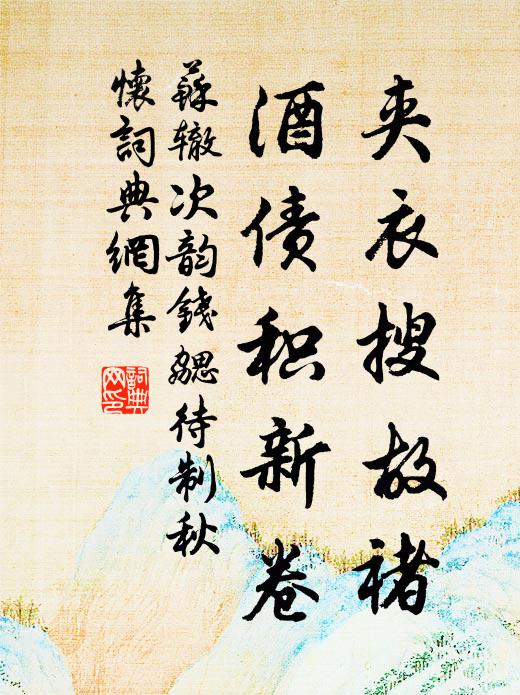 夹衣搜故褚
酒债积新卷
蘇辙次韵錢勰待制秋
懷詞典網集
詞典网印